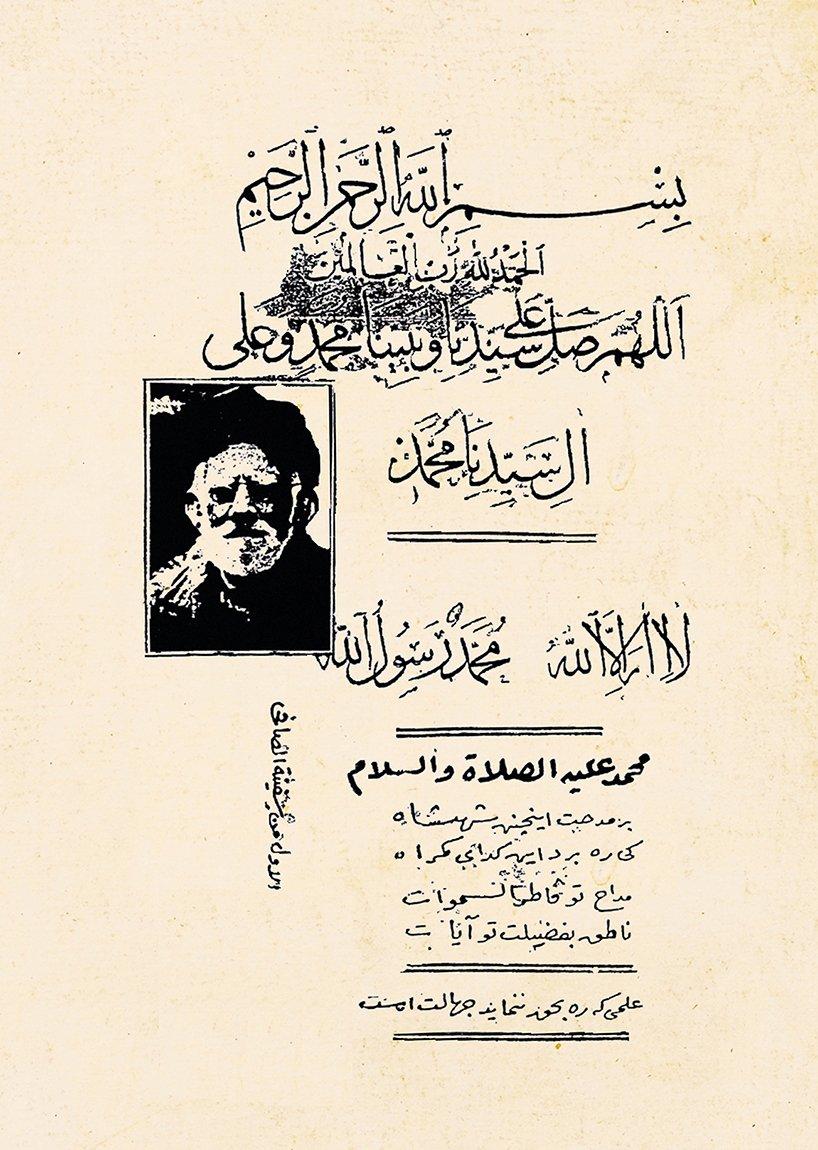 بِسْمِ ٱللَّهِ ٱلرَّحْمٰنِ ٱلرَّحِيمِ
اَلْحَمْدُ لِلّٰهِ رَبِّ الْعَالَمِينَ
اَللّٰهُمَّ صَلِّ عَلٰى سَيِّدِنَا وَنَبِيِّنَا مُحَمَّدٍ وَعَلٰى
اٰلِ سَيِّدِنَا مُحَمَّدٍ
لَا اِلٰهَ اِلَّا اللّٰهُ مُحَمَّدٌ رَسُولُ اللّٰهِ
محمد عليه الصلاة والسلام
بر مدحت اینچنین شهنشاه
کی ره برد این کدای کمراه
مداح تو فاطر السموات
ناطق بفضیلت تو آیات
علمی که ره بحق ننماید جهالت است
الاول من سفينة الصافى